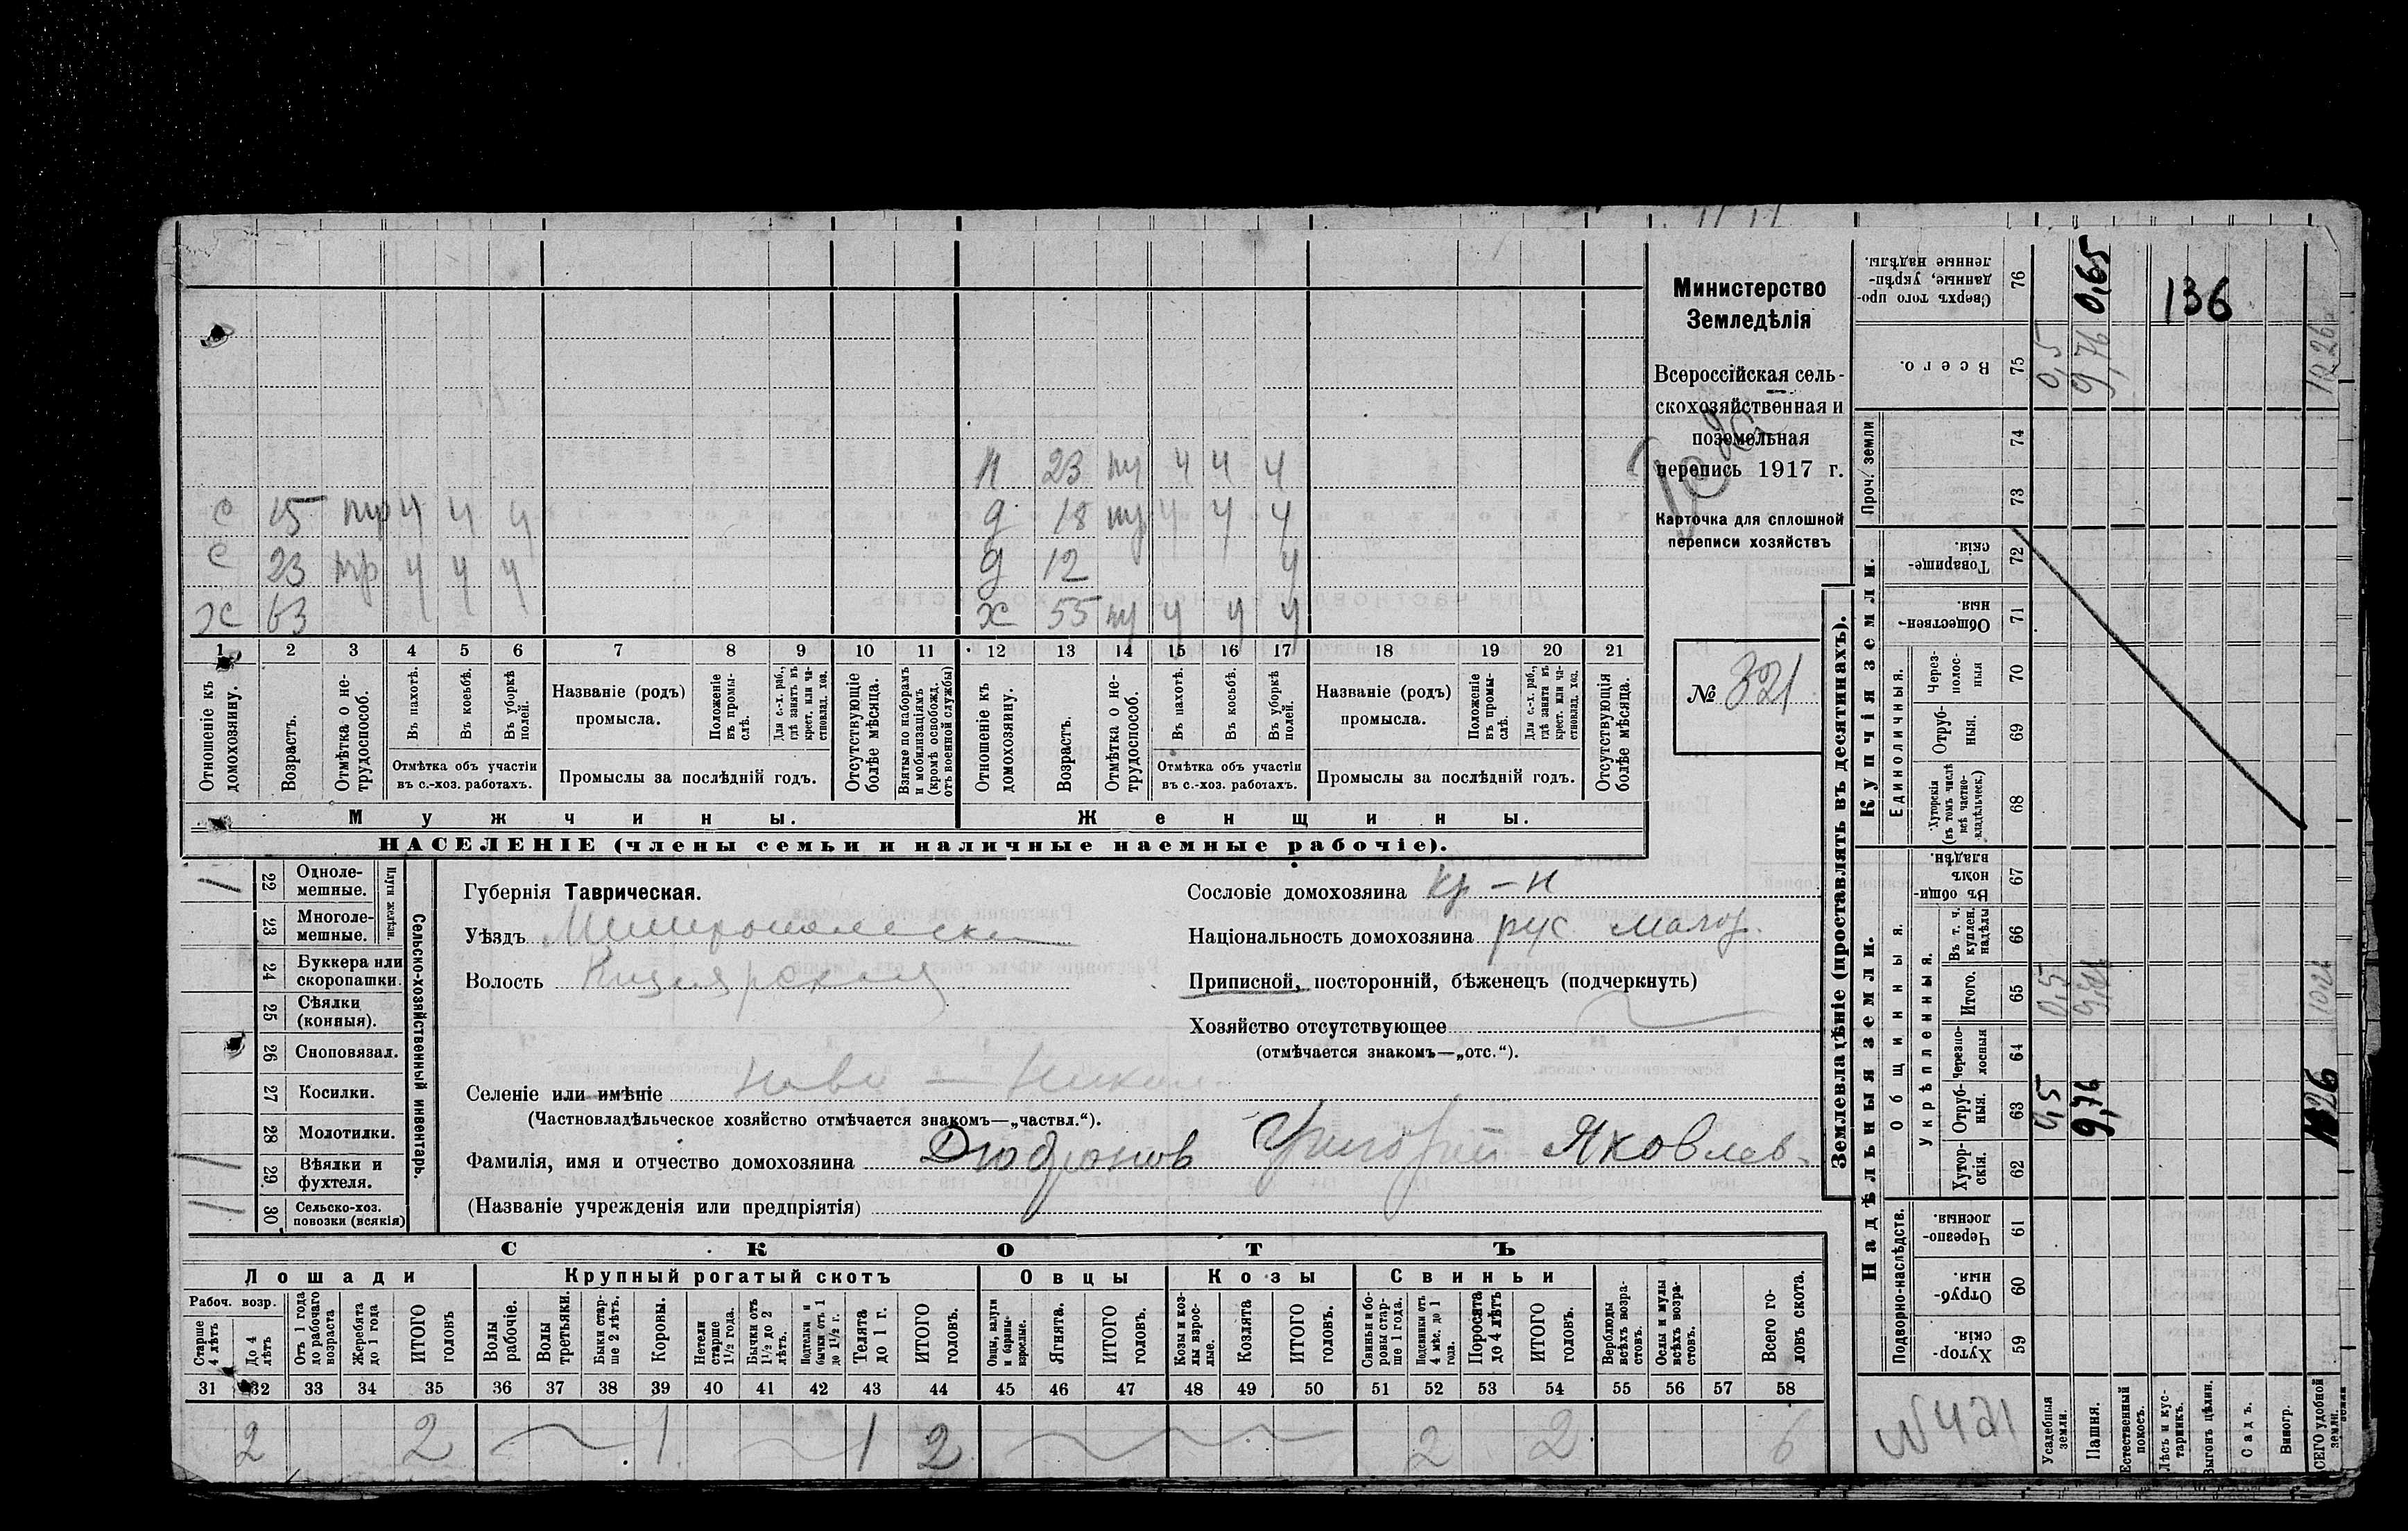 Министерство
Земледѣлія
Всероссійская сель-
скохозяйственная и
поземельная
перепись 1917 г.
Карточка для сплошной
переписи хозяйствъ
№ 321
х 63
с 23 тр ч ч ч
с 15 тр ч ч ч
х 55 ч ч ч
д 12 ч
д 18 ч ч ч
23 ч ч ч
1 2 3 4 5 6 7 8 9 10 11 12 13 14 15 16 17 18 19 20 21
Отношеніе къ домохозяину.
Возрастъ.
Отмѣтка о не-трудоспособ.
Въ пахотѣ.
Въ косьбѣ.
Въ уборкѣ полей.
Отмѣтка объ участіи
въ с.-хоз. работахъ.
Названіе (родъ)
промысла.
Положеніе въ промы-слѣ.
Для с.-х. раб., гдѣ занятъ въ крест. или ча-стновлад. хоз.
Промыслы за послѣдній годъ.
Отсутствующіе болѣе мѣсяца.
Взятые по наборамъ и мобилизаціямъ (кромѣ освобожд. отъ военной службы)
Отношеніе къ домохозяину.
Возрастъ.
Отмѣтка о не-трудоспособ.
Въ пахотѣ.
Въ косьбѣ.
Въ уборкѣ полей.
Отмѣтка объ участіи
въ с.-хоз. работахъ.
Названіе (родъ)
промысла.
Положеніе въ промы-слѣ.
Для с.-х. раб., гдѣ занята въ крест. или ча-стновлад. хоз.
Промыслы за послѣдній годъ.
Отсутствующія болѣе мѣсяца.
Мужчины. Женщины.
НАСЕЛЕНІЕ (члены семьи и наличные наемные рабочіе).
Сельско-хозяйственный инвентарь.
Плуги желѣзн.
22 Одноле-мешные. 1
23 Многоле-мешные.
24 Буккера или скоропашки.
25 Сѣялки (конныя).
26 Сноповязал.
27 Косилки.
28 Молотилки.
29 Вѣялки и фухтеля. 1
30 Сельско-хоз. повозки (всякія) 1
Губернія Таврическая.
Уѣздъ Мелитопольскій
Волость Кизиярская
Сословіе домохозяина кр-н
Національность домохозяина рус малор.
Приписной, посторонній, бѣженецъ (подчеркнуть)
Хозяйство отсутствующее
(отмѣчается знакомъ—„отс.“).
Селеніе или имѣніе Ново - Никол.
(Частновладѣльческое хозяйство отмѣчается знакомъ—„частвл.“).
Фамилія, имя и отчество домохозяина Григорій Яковлев.
(Названіе учрежденія или предпріятія)
СКОТЪ
Лошади Крупный рогатый скотъ Овцы Козы Свиньи
Рабоч. возр.
Старше 4 лѣтъ
До 4 лѣтъ
Отъ 1 года до рабочаго возраста
Жеребята до 1 года
ИТОГО головъ
Волы рабочіе.
Волы третьяки.
Быки стар-ше 2 лѣтъ.
Коровы.
Нетели старше 1½ года.
Бычки отъ 1½ до 2 лѣтъ.
Подтелки и бычки отъ 1 до 1½ г.
Телята до 1 г.
ИТОГО головъ.
Овцы, валухи и бараны-взрослые.
Ягнята.
ИТОГО головъ.
Козы и коз-лы взрос-лые.
Козлята
ИТОГО головъ.
Свиньи и бо-ровы стар-ше 1 года.
Подсвинки отъ 4 мѣс. до 1 года.
Поросята до 4 лѣтъ
ИТОГО головъ.
Верблюды всѣхъ возра-стовъ.
Ослы и мулы всѣхъ возра-стовъ.
Всего го-ловъ скота.
31 32 33 34 35 36 37 38 39 40 41 42 43 44 45 46 47 48 49 50 51 52 53 54 55 56 57 58
2 2 1 1 2 2 2 6
Землевладѣніе (проставлять въ десятинахъ).
Надѣльныя земли. Купчія земли. Проч. земли
Подворно-наслѣдств.
Общинныя.
Укрѣпленныя.
Единоличныя.
59 Хутор-скія.
60 Отруб-ныя.
61 Черезпо-лосныя.
62 Хутор-скія.
63 Отруб-ныя. 0,5 9,76 10 26
64 Черезпо-лосныя
65 Итого. 0,5 10,26
66 Въ т. ч. куплен. надѣлы
67 Въ общи-номъ владѣн.
68 Хуторскія (въ томъ числѣ всѣ частно-владѣльческ.)
69 Отруб-ныя.
70 Через-полос-ныя
71 Обществен-ныя.
72 Товарище-скія.
73
74
75 Всего. 0,5 9,76 10,26
76 Сверхъ того про-данные, укрѣп-ленные надѣлы. 0,65
136
N 421
Усадебныя земли.
Пашня.
Естественный покосъ.
Лѣсъ и кус-тарникъ.
Выгонъ цѣлин.
Садъ.
Виногр.
ВСЕГО удобной земли.